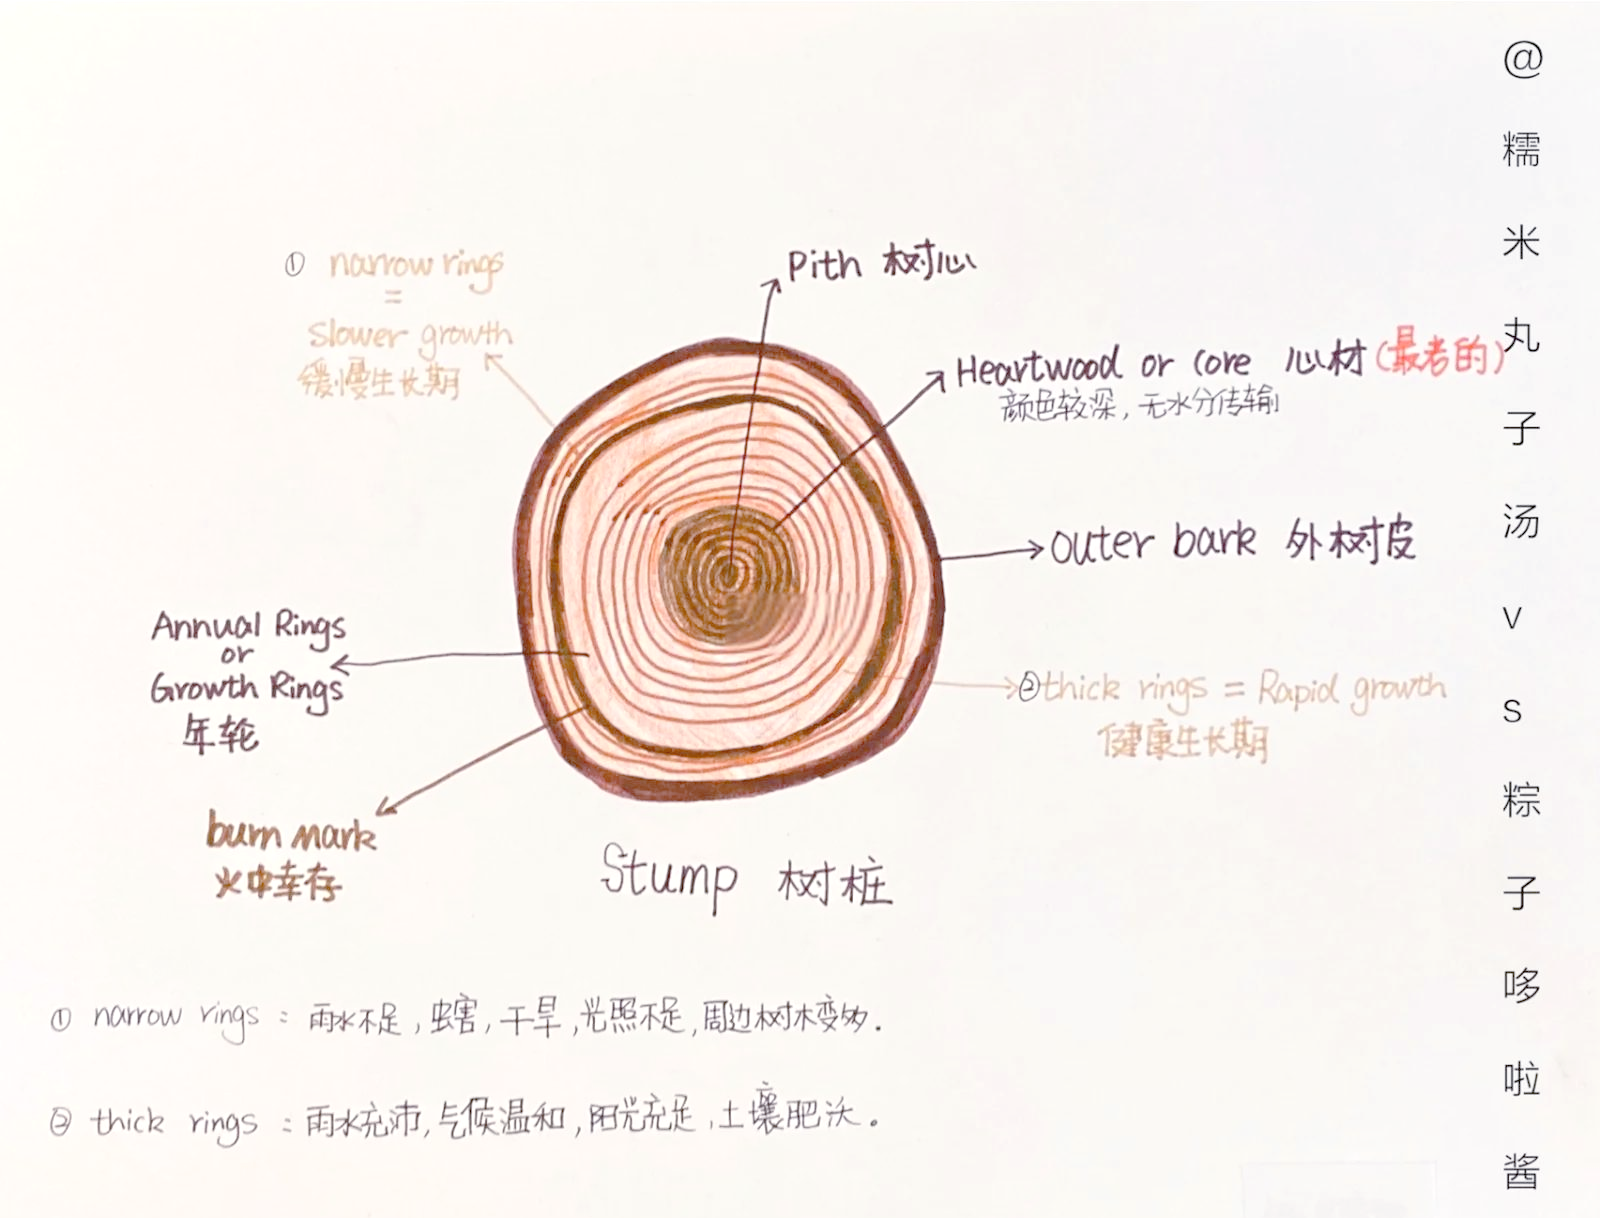 ① narrow rings
=
Slower growth
缓慢生长期
Pith 树心
Heartwood or core 心材(最考的)
颜色较深,无水分传输
Outer bark 外树皮
Annual Rings
or
Growth Rings
年轮
②thick rings = Rapid growth
健康生长期
burn mark
火中幸存
Stump 树桩
① narrow rings : 雨水不足,虫害,干旱,光照不足,周边树木变多.
② thick rings : 雨水充沛,气候温和,阳光充足,土壤肥沃。
@糯米丸子汤vs粽子哆啦酱